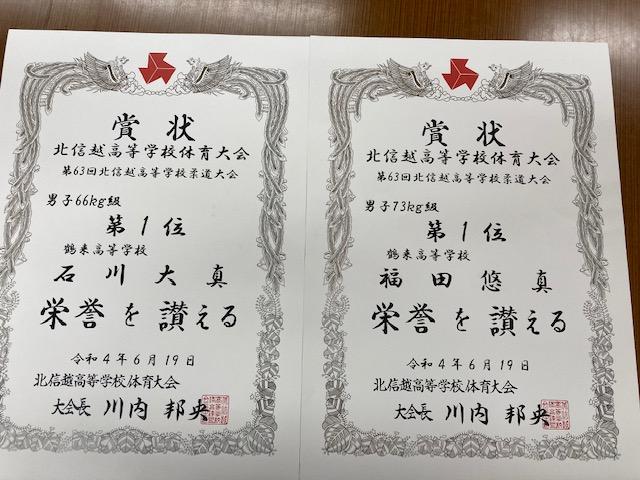 賞状
北信越高等学校体育大会
第63回北信越高等学校柔道大会
男子66kg級
第1位
鶴来高等学校
石川大真
栄誉を讃える
令和4年6月19日
北信越高等学校体育大会
大会長 川内邦央
賞状
北信越高等学校体育大会
第63回北信越高等学校柔道大会
男子73kg級
第1位
鶴来高等学校
福田悠真
栄誉を讃える
令和4年6月19日
北信越高等学校体育大会
大会長 川内邦央